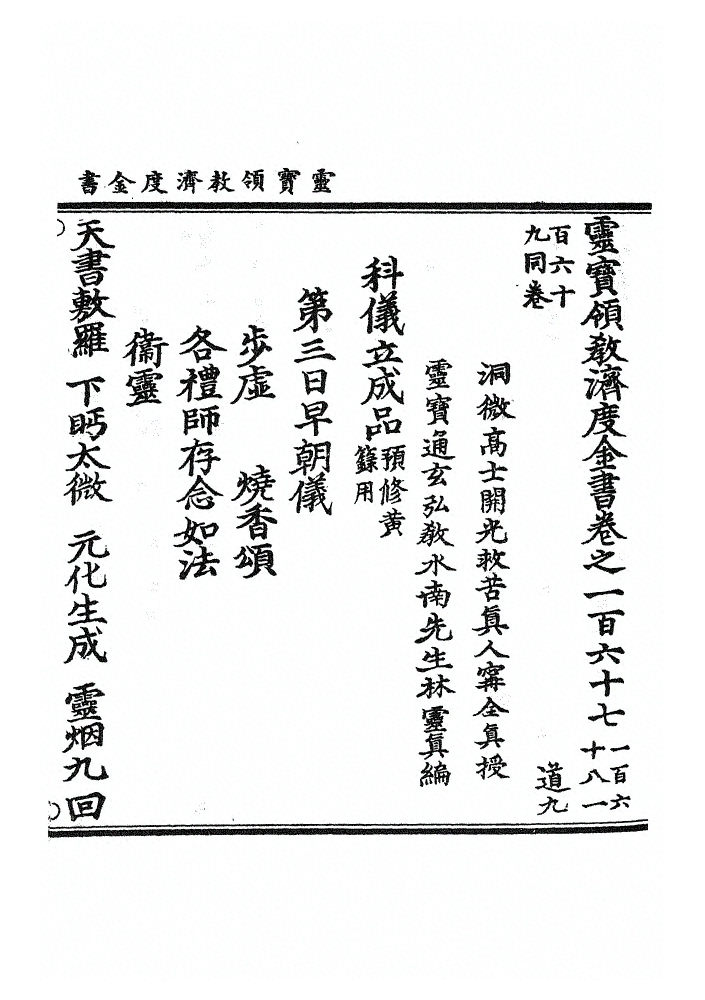 靈寶領教濟度金書
靈寶領敎濟度金書卷之一百六十七一百六十八一
百六十九同卷
道九
洞微高士開光救苦眞人甯全眞授
靈寶通玄弘敎水南先生林靈眞編
科儀立成品預修黃籙用
第三日早朝儀
步虛 燒香頌
各禮師存念如法
衞靈
天書敷羅 下眄太微 元化生成 靈烟九回